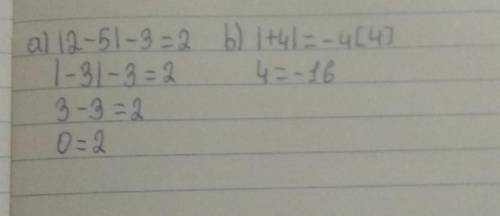 a) |2-5|-3=2 b) |+4|=-4[4]
|-3|-3=2 4=-16
3-3=2
0=2